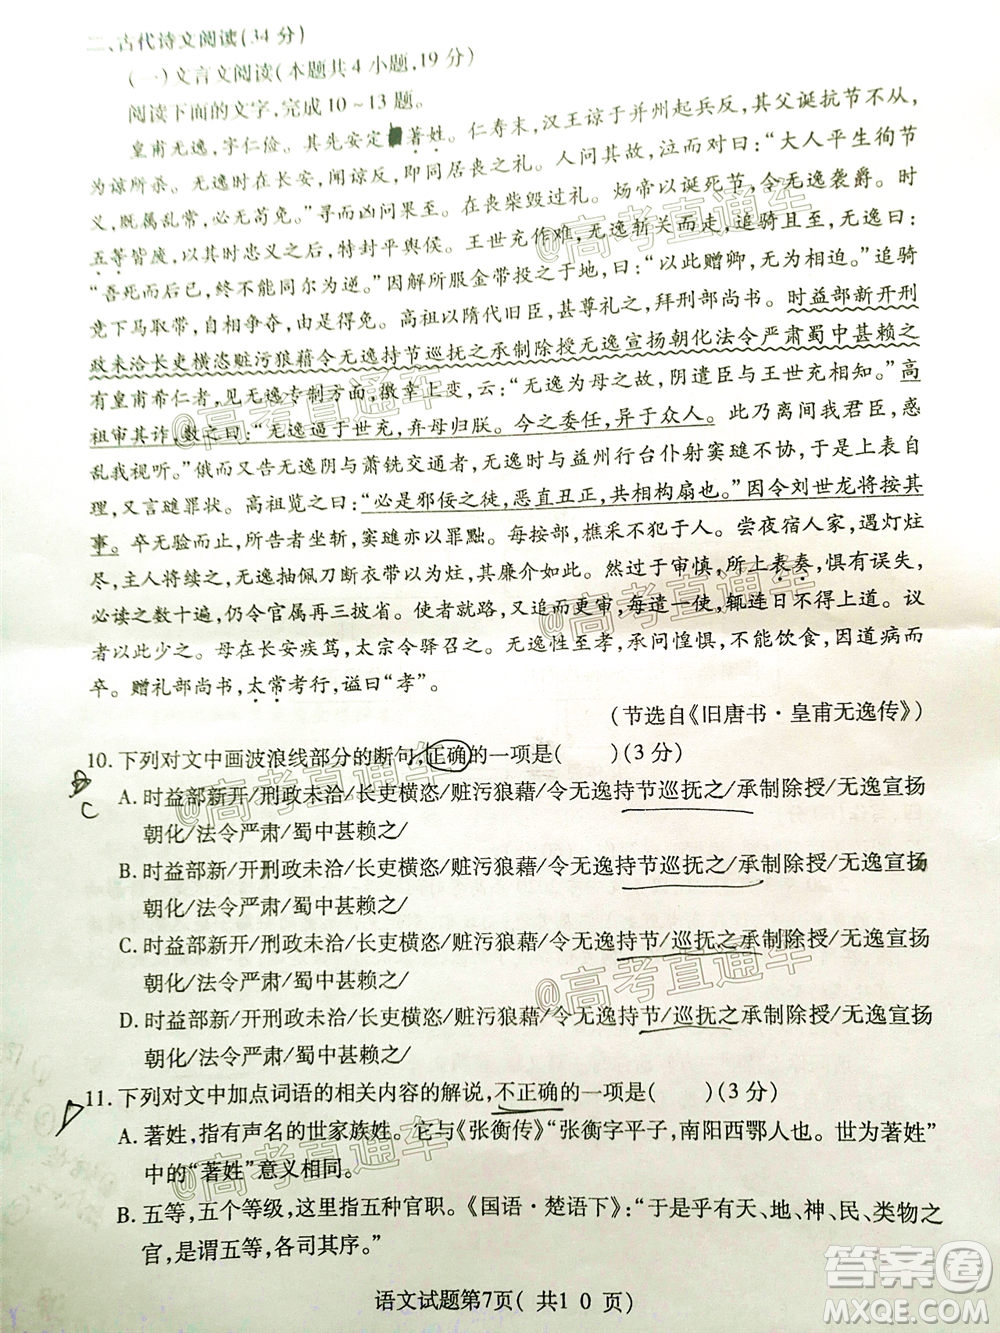 二、古代诗文阅读(34分)
(一)文言文阅读(本题共4小题,19分)
阅读下面的文字,完成10~13题。
皇甫无逸,字仁俭。其先安定著姓。仁寿末,汉王谅于并州起兵反,其父诞抗节不从,
为谅所杀。无逸在长安,闻谅反,即同居丧之礼。人问其故,泣而对曰:“大人平生徇节
义,既属乱常,必无苟免。”寻而凶问果至。在丧柴毁过礼。炀帝以诞死节,令无逸袭爵。时
五等皆废,以其时忠义之后,特封平舆侯。王世充作难,无逸斩关而走,追骑且至,无逸曰:
“吾死而已,终不能同尔为逆。”因解所服金带投之于地,曰:“以此赠卿,无为相迫。”追骑
竞下马取带,自相争夺,由是得免。高祖以隋代旧臣,甚尊礼之,拜刑部尚书。时益部新开刑
政未洽长吏横恣赃污狼藉令无逸持节巡抚之承制除授无逸宣扬朝化法令严肃蜀中甚赖之
有皇甫希仁者,见无逸专制方面,徼幸上变,云:“无逸为母之故,阴遣臣与王世充相知。”高
祖审其诈,数之曰:“无逸逼于世充,弃母归朕。今之委任,异于众人。此乃离间我君臣,惑
乱我视听。”俄而又告无逸阴与萧铣交通者,无逸时与益州行台仆射窦琎不协,于是上表自
理,又言琎罪状。高祖览之曰:“必是邪佞之徒,恶直丑正,共相构扇也。”因令刘世龙将按其
事。卒无验而止,所告者坐斩,窦琎亦以罪黜。每按部,樵采不犯于人。尝夜宿人家,遇灯炷
尽,主人将续之,无逸抽佩刀断衣带以为炷,其廉介如此。然过于审慎,所上表奏,惧有误失,
必读之数十遍,仍令官属再三披省。使者就路,又追而更审,每遣一使,辄连日不得上道。议
者以此少之。母在长安疾笃,太宗令驿召之。无逸性至孝,承问惶惧,不能饮食,因道病而
卒。赠礼部尚书,太常考行,谥曰“孝”。
(节选自《旧唐书·皇甫无逸传》)
10. 下列对文中画波浪线部分的断句,正确的一项是( )(3分)
C
A. 时益部新开/刑政未洽/长吏横恣/赃污狼藉/令无逸持节巡抚之/承制除授/无逸宣扬
朝化/法令严肃/蜀中甚赖之/
B. 时益部新开/刑政未洽/长吏横恣/赃污狼藉/令无逸持节巡抚之/承制除授/无逸宣扬/
朝化/法令严肃/蜀中甚赖之/
C. 时益部新开/刑政未洽/长吏横恣/赃污狼藉/令无逸持节/巡抚之承制除授/无逸宣扬
朝化/法令严肃/蜀中甚赖之/
D. 时益部新/开刑政未洽/长吏横恣/赃污狼藉/令无逸持节/巡抚之/承制除授/无逸宣扬
朝化/法令严肃/蜀中甚赖之/
11. 下列对文中加点词语的相关内容的解说,不正确的一项是( )(3分)
A. 著姓,指有声名的世家族姓。它与《张衡传》“张衡字平子,南阳西鄂人也。世为著姓”
中的“著姓”意义相同。
B. 五等,五个等级,这里指五种官职。《国语·楚语下》:“于是乎有天、地、神、民、类物之
官,是谓五等,各司其序。”
语文试题第7页( 共1 0 页)
@高考直通车
@高考直通车
@高考直通车
@高考直通车
@高考直通车
@高考直通车
答案圈
MXQE.COM